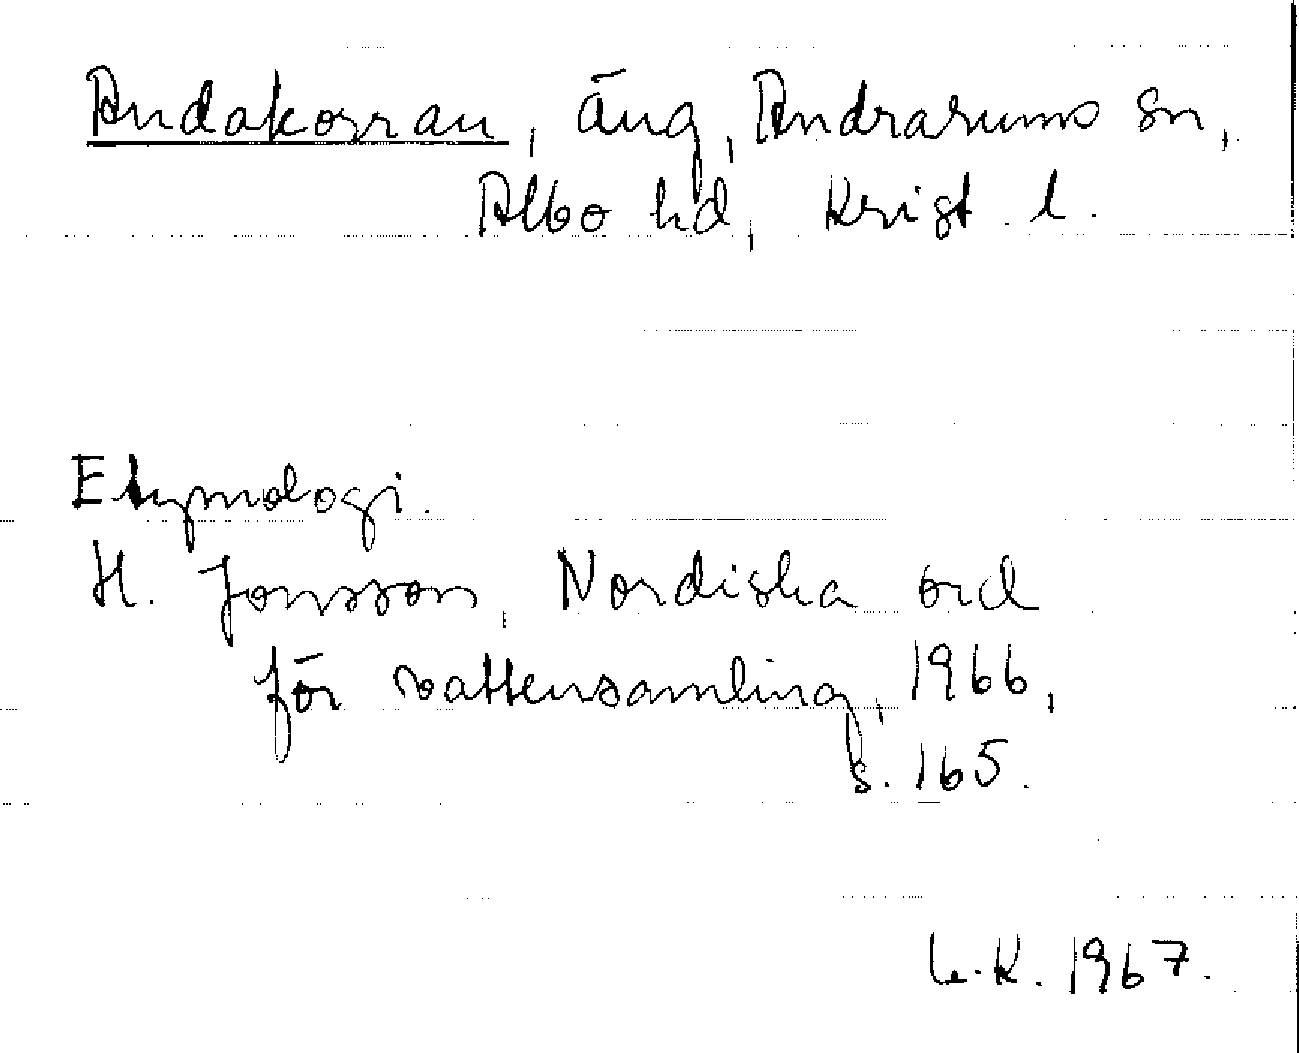 Andakorran, äng, Andrarums sn,
Albo hd, Krist. l.
Etymologi.
H. Jonsson, Nordiska ord
för vattensamling, 1966,
s. 165.
K. 1967.